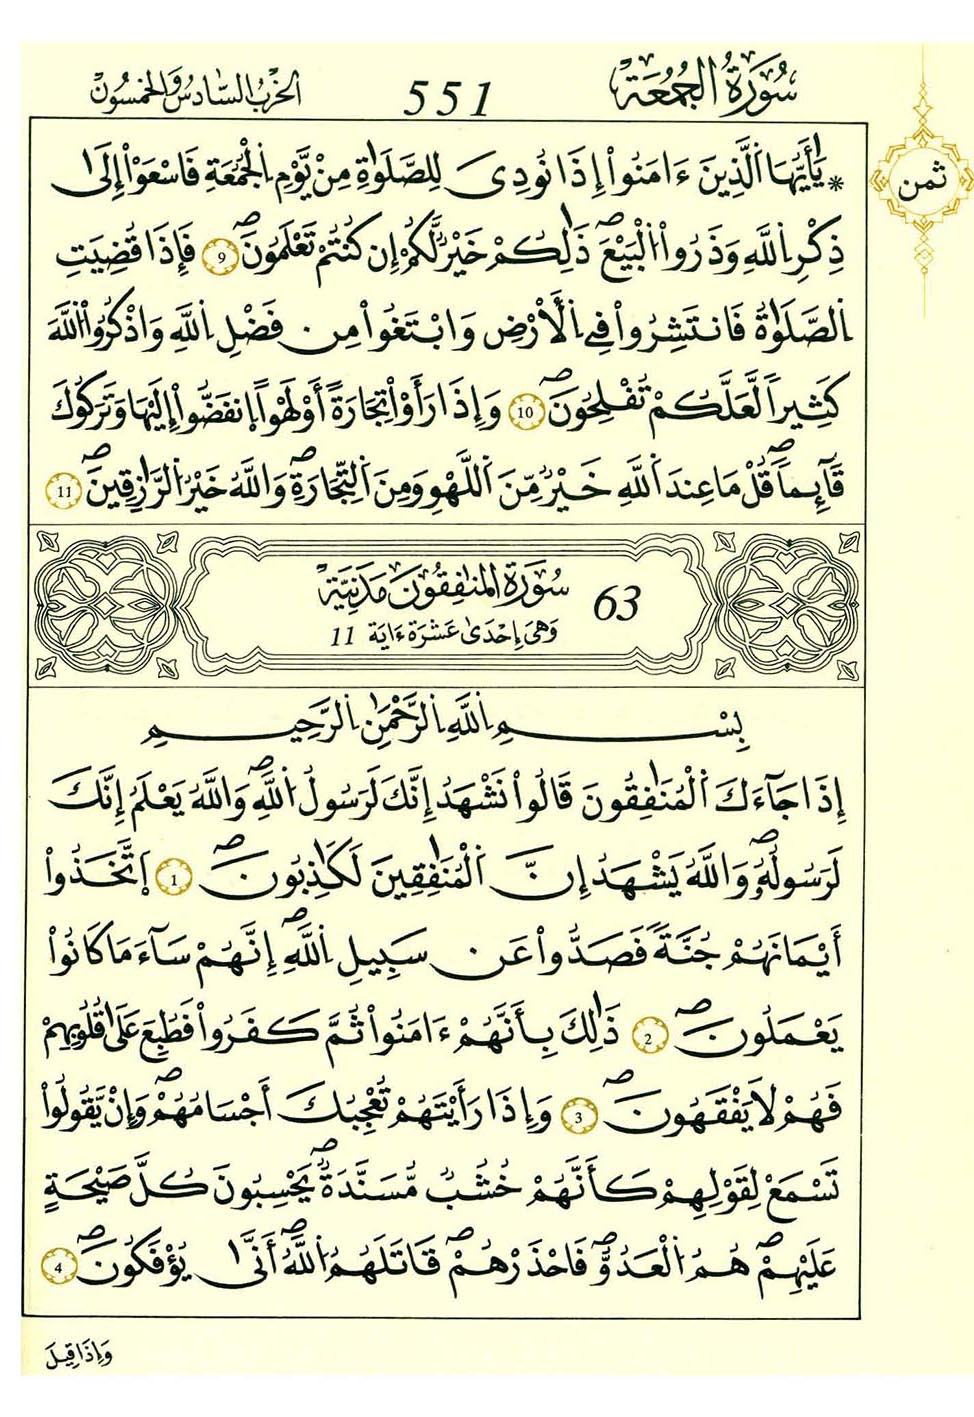 سُورَةُ الجُمُعَة
551
الحِزْبُ السَّادِسُ وَالخَمْسُون
ثمن
* يَٰأَيُّهَا اَ۬لذِينَ ءَامَنُواْ إِذَا نُودِيَ لِلصَّلَوٰةِ مِنْ يَّوْمِ اِ۬لْجُمُعَةِ فَاسْعَوِاْ اِلَىٰ
ذِكْرِ اِ۬للَّهِ وَذَرُواْ اُ۬لْبَيْعَۖ ذَٰلِكُمْ خَيْرٞ لَّكُمْ إِن كُنتُمْ تَعْلَمُونَۖ 9 فَإِذَا قُضِيَتِ
اِ۬لصَّلَوٰةُ فَانتَشِرُواْ فِے اِ۬لَارْضِ وَابْتَغُواْ مِن فَضْلِ اِ۬للَّهِ وَاذْكُرُواْ اُ۬للَّهَ
كَثِيراٗ لَّعَلَّكُمْ تُفْلِحُونَۖ 10 وَإِذَا رَأَوْاْ تِجَٰرَةً أَوْ لَهْواً اِ۪نفَضُّواْ إِلَيْهَا وَتَرَكُوكَ
قَآئِماٗۖ قُلْ مَا عِندَ اَ۬للَّهِ خَيْرٞ مِّنَ اَ۬للَّهْوِ وَمِنَ اَ۬لتِّجَٰرَةِۖ وَاللَّهُ خَيْرُ اُ۬لرَّٰزِقِينَۖ 11
سُورَةُ المُنَٰفِقُونَ مَدَنِيَّة 63
وَهِيَ إِحْدَىٰ عَشَرَةَ ءَايَة 11
بِسْمِ اِ۬للَّهِ اِ۬لرَّحْمَٰنِ اِ۬لرَّحِيمِ
إِذَا جَآءَكَ اَ۬لْمُنَٰفِقُونَ قَالُواْ نَشْهَدُ إِنَّكَ لَرَسُولُ اُ۬للَّهِۖ وَاللَّهُ يَعْلَمُ إِنَّكَ
لَرَسُولُهُۥۖ وَاللَّهُ يَشْهَدُ إِنَّ اَ۬لْمُنَٰفِقِينَ لَكَٰذِبُونَۖ 1 اَ۪تَّخَذُواْ
أَيْمَٰنَهُمْ جُنَّةٗ فَصَدُّواْ عَن سَبِيلِ اِ۬للَّهِۖ إِنَّهُمْ سَآءَ مَا كَانُواْ
يَعْمَلُونَۖ 2 ذَٰلِكَ بِأَنَّهُمْ ءَامَنُواْ ثُمَّ كَفَرُواْ فَطُبِعَ عَلَىٰ قُلُوبِهِمْ
فَهُمْ لَا يَفْقَهُونَۖ 3 وَإِذَا رَأَيْتَهُمْ تُعْجِبُكَ أَجْسَامُهُمْۖ وَإِنْ يَّقُولُواْ
تَسْمَعْ لِقَوْلِهِمْ كَأَنَّهُمْ خُشُبٞ مُّسَنَّدَةٞۖ يَحْسِبُونَ كُلَّ صَيْحَةٍ
عَلَيْهِمْۖ هُمُ اُ۬لْعَدُوُّۖ فَاحْذَرْهُمْۖ قَٰتَلَهُمُ اُ۬للَّهُۖ أَنَّىٰ يُؤْفَكُونَۖ 4
وَإِذَا قِيلَ